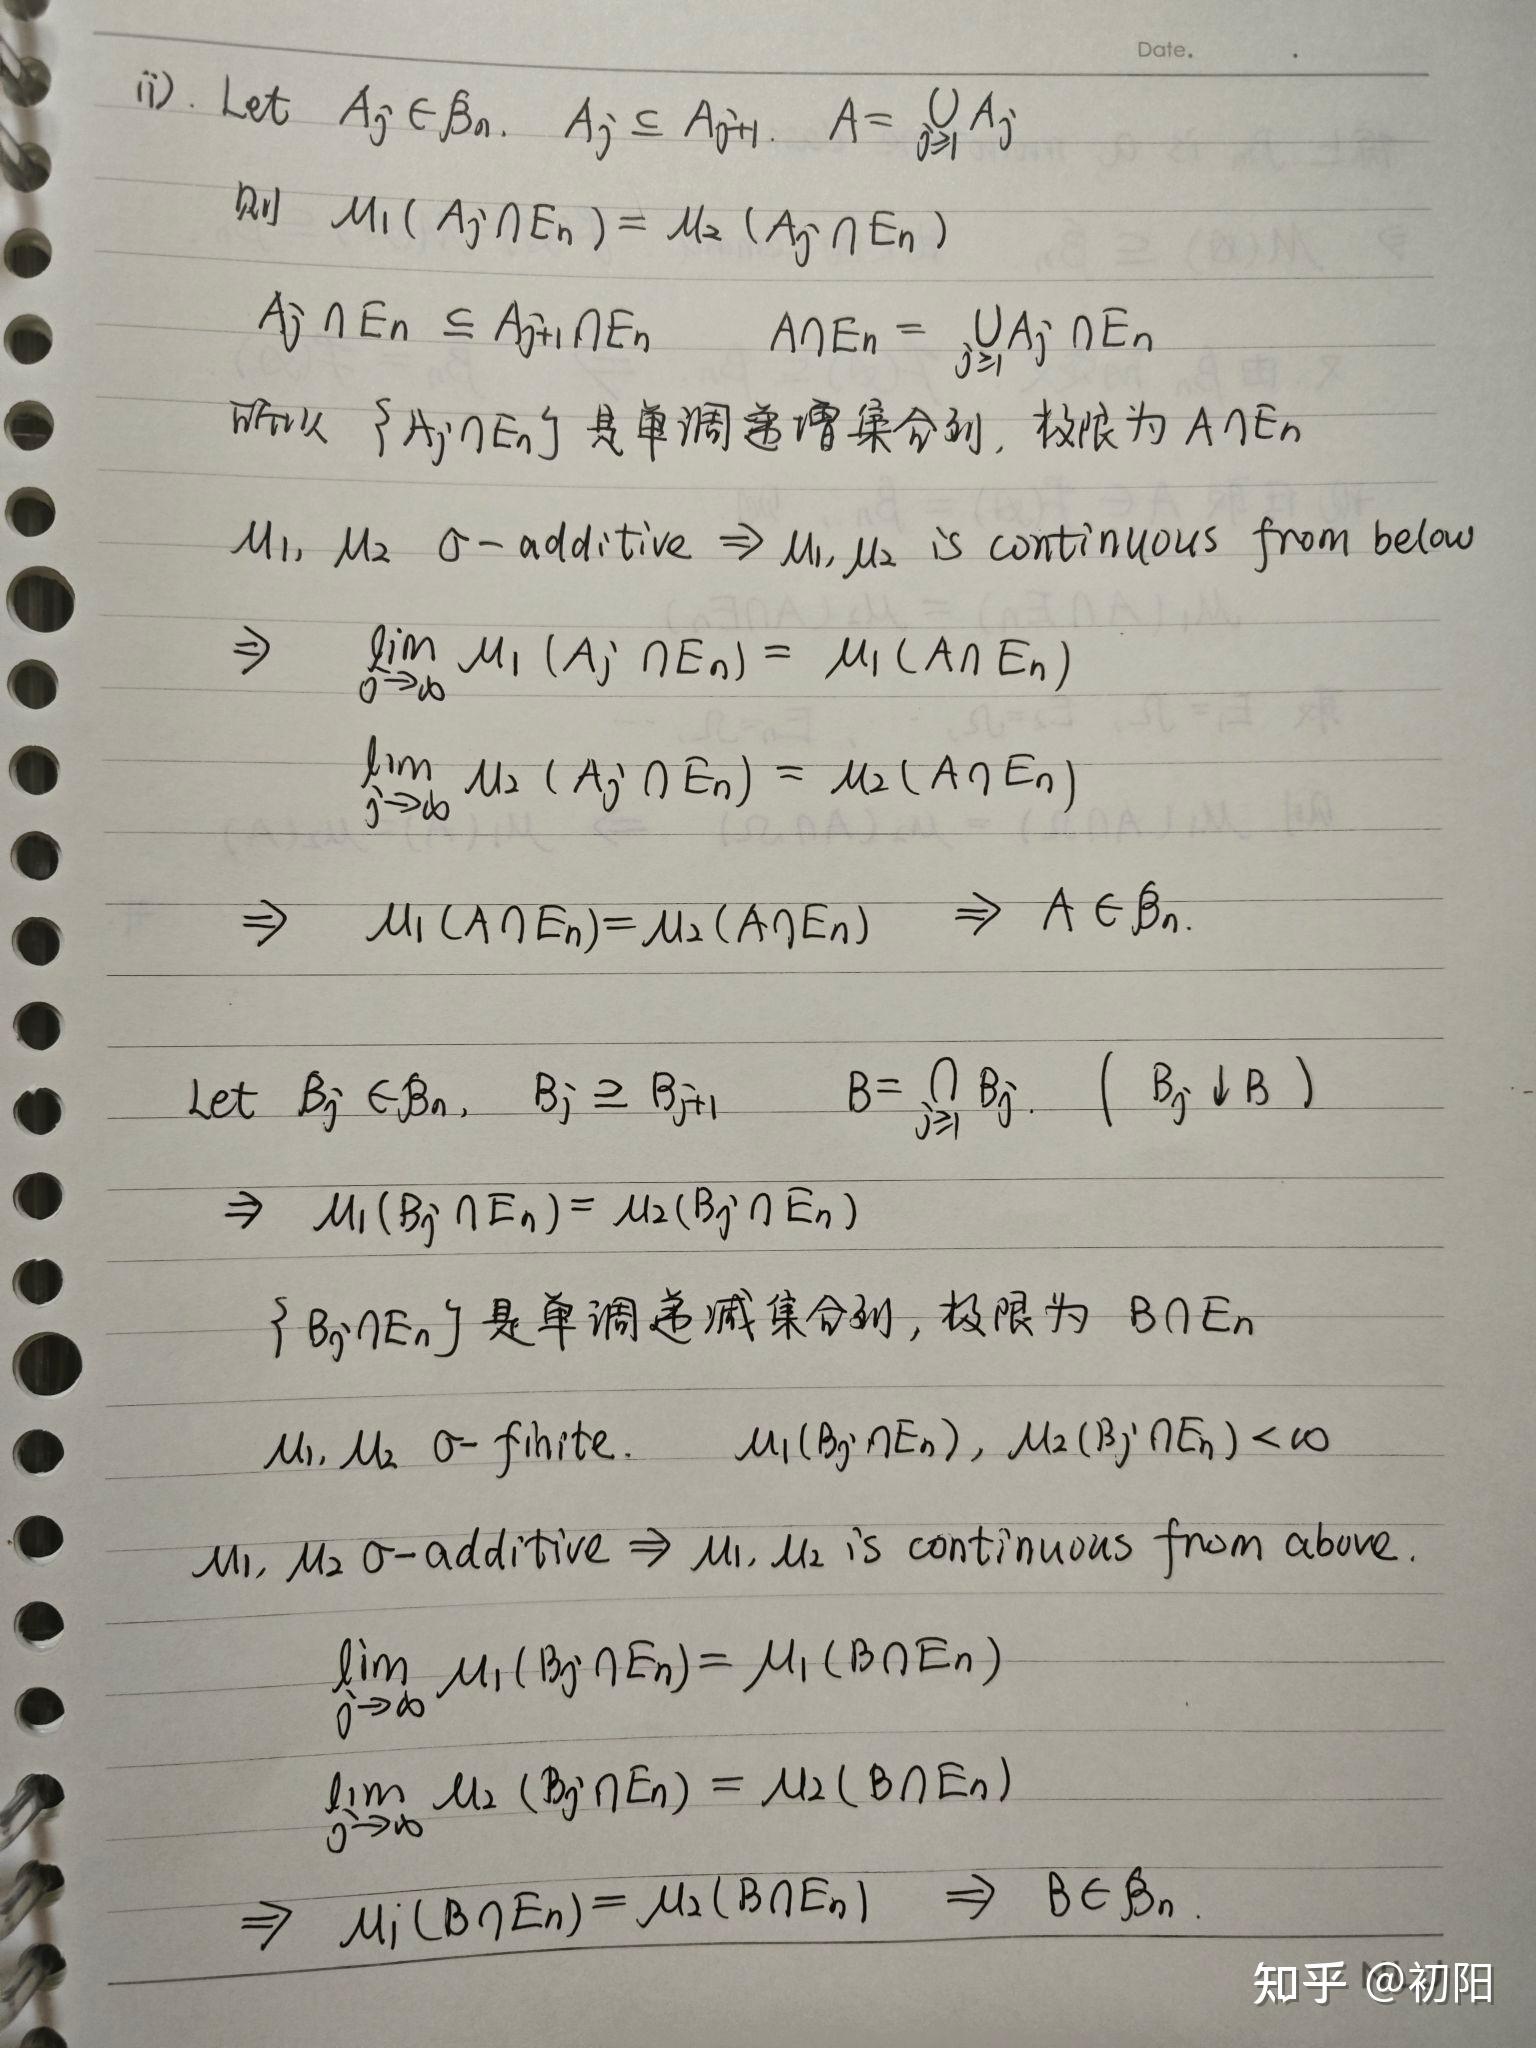 Date. .
ii). Let Aj ∈ βn. Aj ⊆ Aj+1. A = ⋃j≥1 Aj
则 μ1(Aj∩En) = μ2(Aj∩En)
Aj∩En ⊆ Aj+1∩En A∩En = ⋃j≥1 Aj∩En
所以 {Aj∩En} 是单调递增集合列, 极限为 A∩En
μ1, μ2 σ-additive ⇒ μ1, μ2 is continuous from below
⇒ lim j→∞ μ1(Aj∩En) = μ1(A∩En)
lim j→∞ μ2(Aj∩En) = μ2(A∩En)
⇒ μ1(A∩En) = μ2(A∩En) ⇒ A ∈ βn.
Let Bj ∈ βn, Bj ⊇ Bj+1 B = ⋂j≥1 Bj. (Bj ↓ B)
⇒ μ1(Bj∩En) = μ2(Bj∩En)
{Bj∩En} 是单调递减集合列, 极限为 B∩En
μ1, μ2 σ-finite. μ1(Bj∩En), μ2(Bj∩En) < ∞
μ1, μ2 σ-additive ⇒ μ1, μ2 is continuous from above.
lim j→∞ μ1(Bj∩En) = μ1(B∩En)
lim j→∞ μ2(Bj∩En) = μ2(B∩En)
⇒ μ1(B∩En) = μ2(B∩En) ⇒ B ∈ βn.
知乎 @初阳